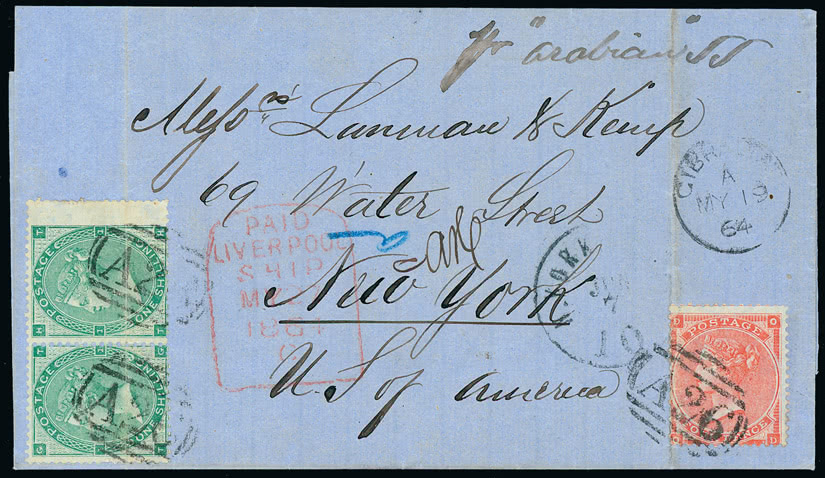 pr "Arabian" SS
Messrs Lanman & Kemp
69 Water Street
New York
U.S of America
PAID
LIVERPOOL
SHIP
1864
GIBRALTAR
A
MY 19
64
YORK
10
POSTAGE
ONE SHILLING
POSTAGE
ONE SHILLING
A26
POSTAGE
A26